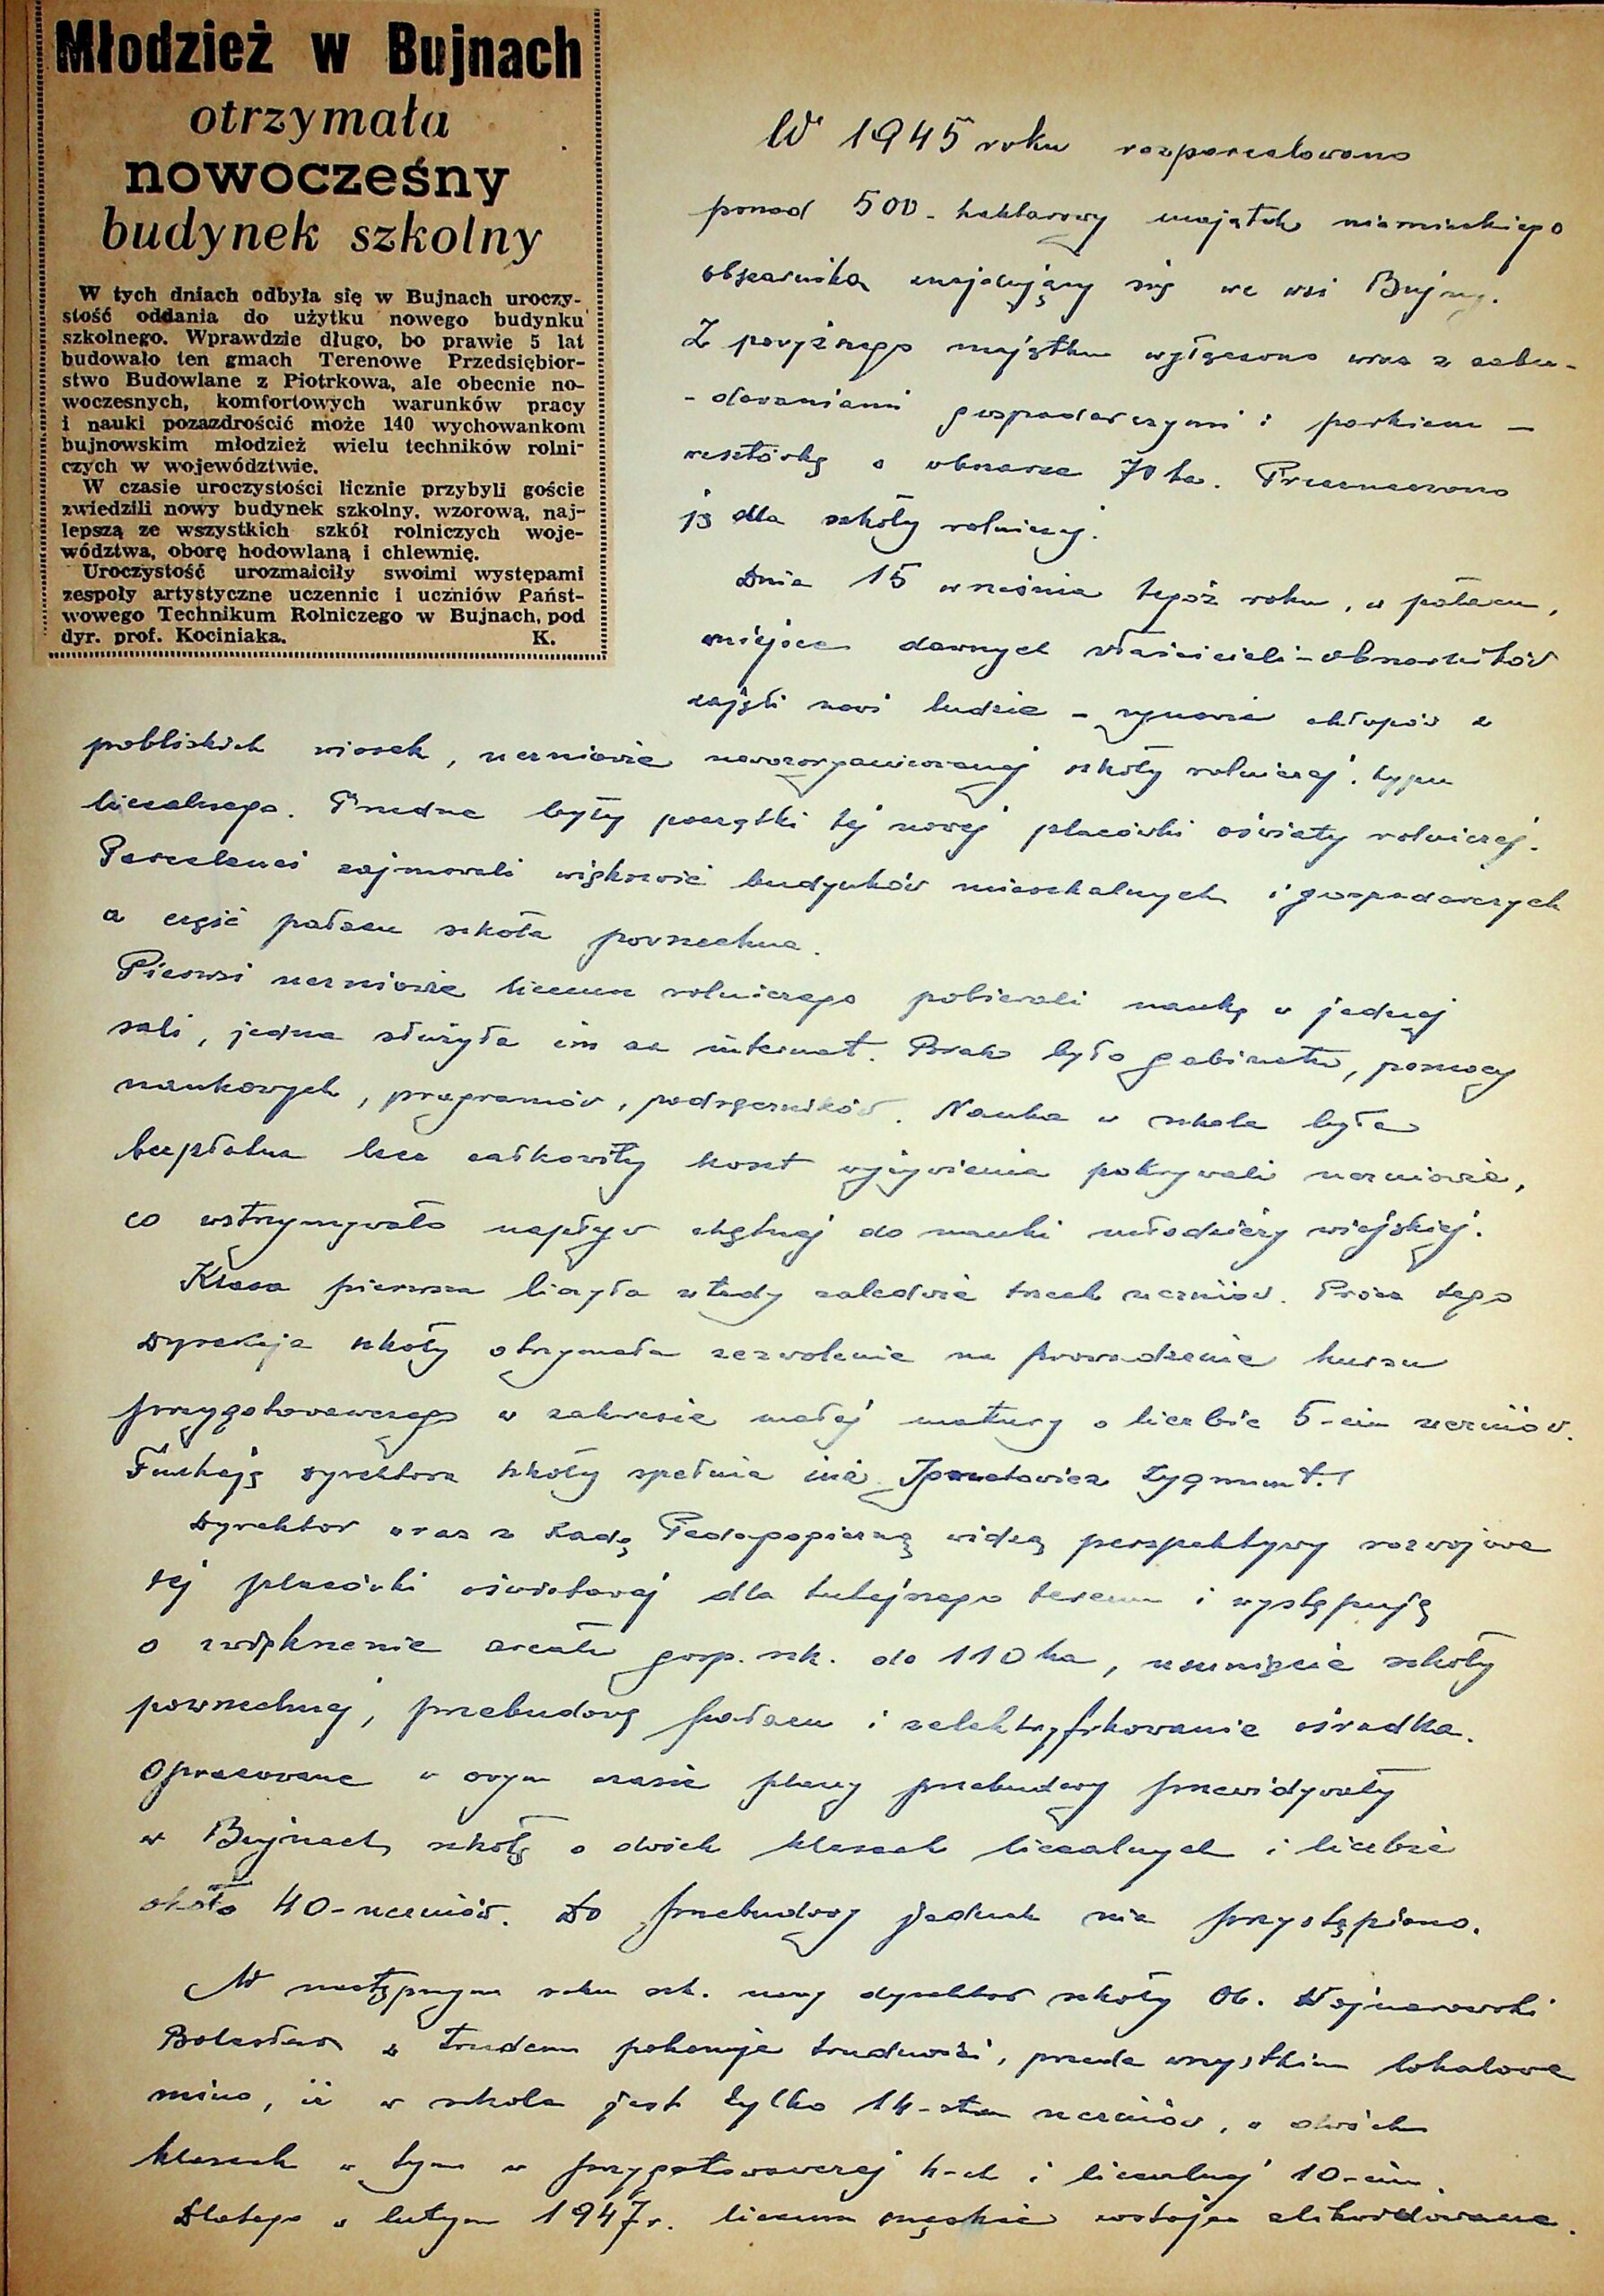 Młodzież w Bujnach
otrzymała
nowoczesny
budynek szkolny
W tych dniach odbyła się w Bujnach uroczy-
stość oddania do użytku nowego budynku
szkolnego. Wprawdzie długo, bo prawie 5 lat
budowało ten gmach Terenowe Przedsiębior-
stwo Budowlane z Piotrkowa, ale obecnie no-
woczesnych, komfortowych warunków pracy
i nauki pozazdrościć może 140 wychowankom
bujnowskim młodzież wielu techników rolni-
czych w województwie.
W czasie uroczystości licznie przybyli goście
zwiedzili nowy budynek szkolny, wzorową, naj-
lepszą ze wszystkich szkół rolniczych woje-
wództwa, oborę hodowlaną i chlewnię.
Uroczystość urozmaiciły swoimi występami
zespoły artystyczne uczennic i uczniów Państ-
wowego Technikum Rolniczego w Bujnach, pod
dyr. prof. Kociniaka. K.
W 1945 roku rozparcelowano
ponad 500-hektarowy majątek niemieckiego
obszarnika znajdujący się we wsi Bujny.
Z powyższego majątku wyłączono wraz z zabu-
-dowaniami gospodarczymi i parkiem -
resztówkę o obszarze 70 ha. Przeznaczono
ją dla szkoły rolniczej.
Dnia 15 września tegoż roku, w pałacu,
miejsce dawnych właścicieli-obszarników
zajęli nowi ludzie - synowie chłopów z
pobliskich wiosek, uczniowie nowozorganizowanej szkoły rolniczej, typu
licealnego. Trudne były początki tej nowej placówki oświaty rolniczej.
Parcelanci zajmowali większość budynków mieszkalnych i gospodarczych
a część pałacu szkoła powszechna.
Pierwsi uczniowie liceum rolniczego pobierali naukę w jednej
sali, jedna służyła im za internat. Brak było gabinetu, pomocy
naukowych, programów, podręczników. Nauka w szkole była
bezpłatna lecz całkowity koszt wyżywienia pokrywali uczniowie,
co wstrzymywało napływ chętnej do nauki młodzieży wiejskiej.
Klasa pierwsza liczyła wtedy zaledwie trzech uczniów. Prócz tego
Dyrekcja szkoły otrzymała zezwolenie na prowadzenie kursu
przygotowawczego w zakresie małej matury o liczbie 5-ciu uczniów.
Funkcję dyrektora szkoły spełnia inż. Zygmunt.
Dyrektor wraz z Radą Pedagogiczną widzą perspektywy rozwojowe
tej placówki oświatowej dla tutejszego terenu i występują
o zwiększenie areału gosp. szk. do 110 ha, usunięcie szkoły
powszechnej, przebudowę pałacu i zelektryfikowanie ośrodka.
Opracowane w owym czasie plany przebudowy przewidywały
w Bujnach szkołę o dwóch klasach licealnych i liczbie
około 40-uczniów. Do przebudowy jednak nie przystąpiono.
W następnym roku szk. nowy dyrektor szkoły Ob. Wojnarowski
Bolesław z trudem pokonuje trudności, przede wszystkim lokalowe
mimo, iż w szkole jest tylko 14-stu uczniów, w dwóch
klasach w tym w przygotowawczej 4-ch i licealnej 10-ciu.
Dlatego w lutym 1947 r. liceum męskie zostaje zlikwidowane.